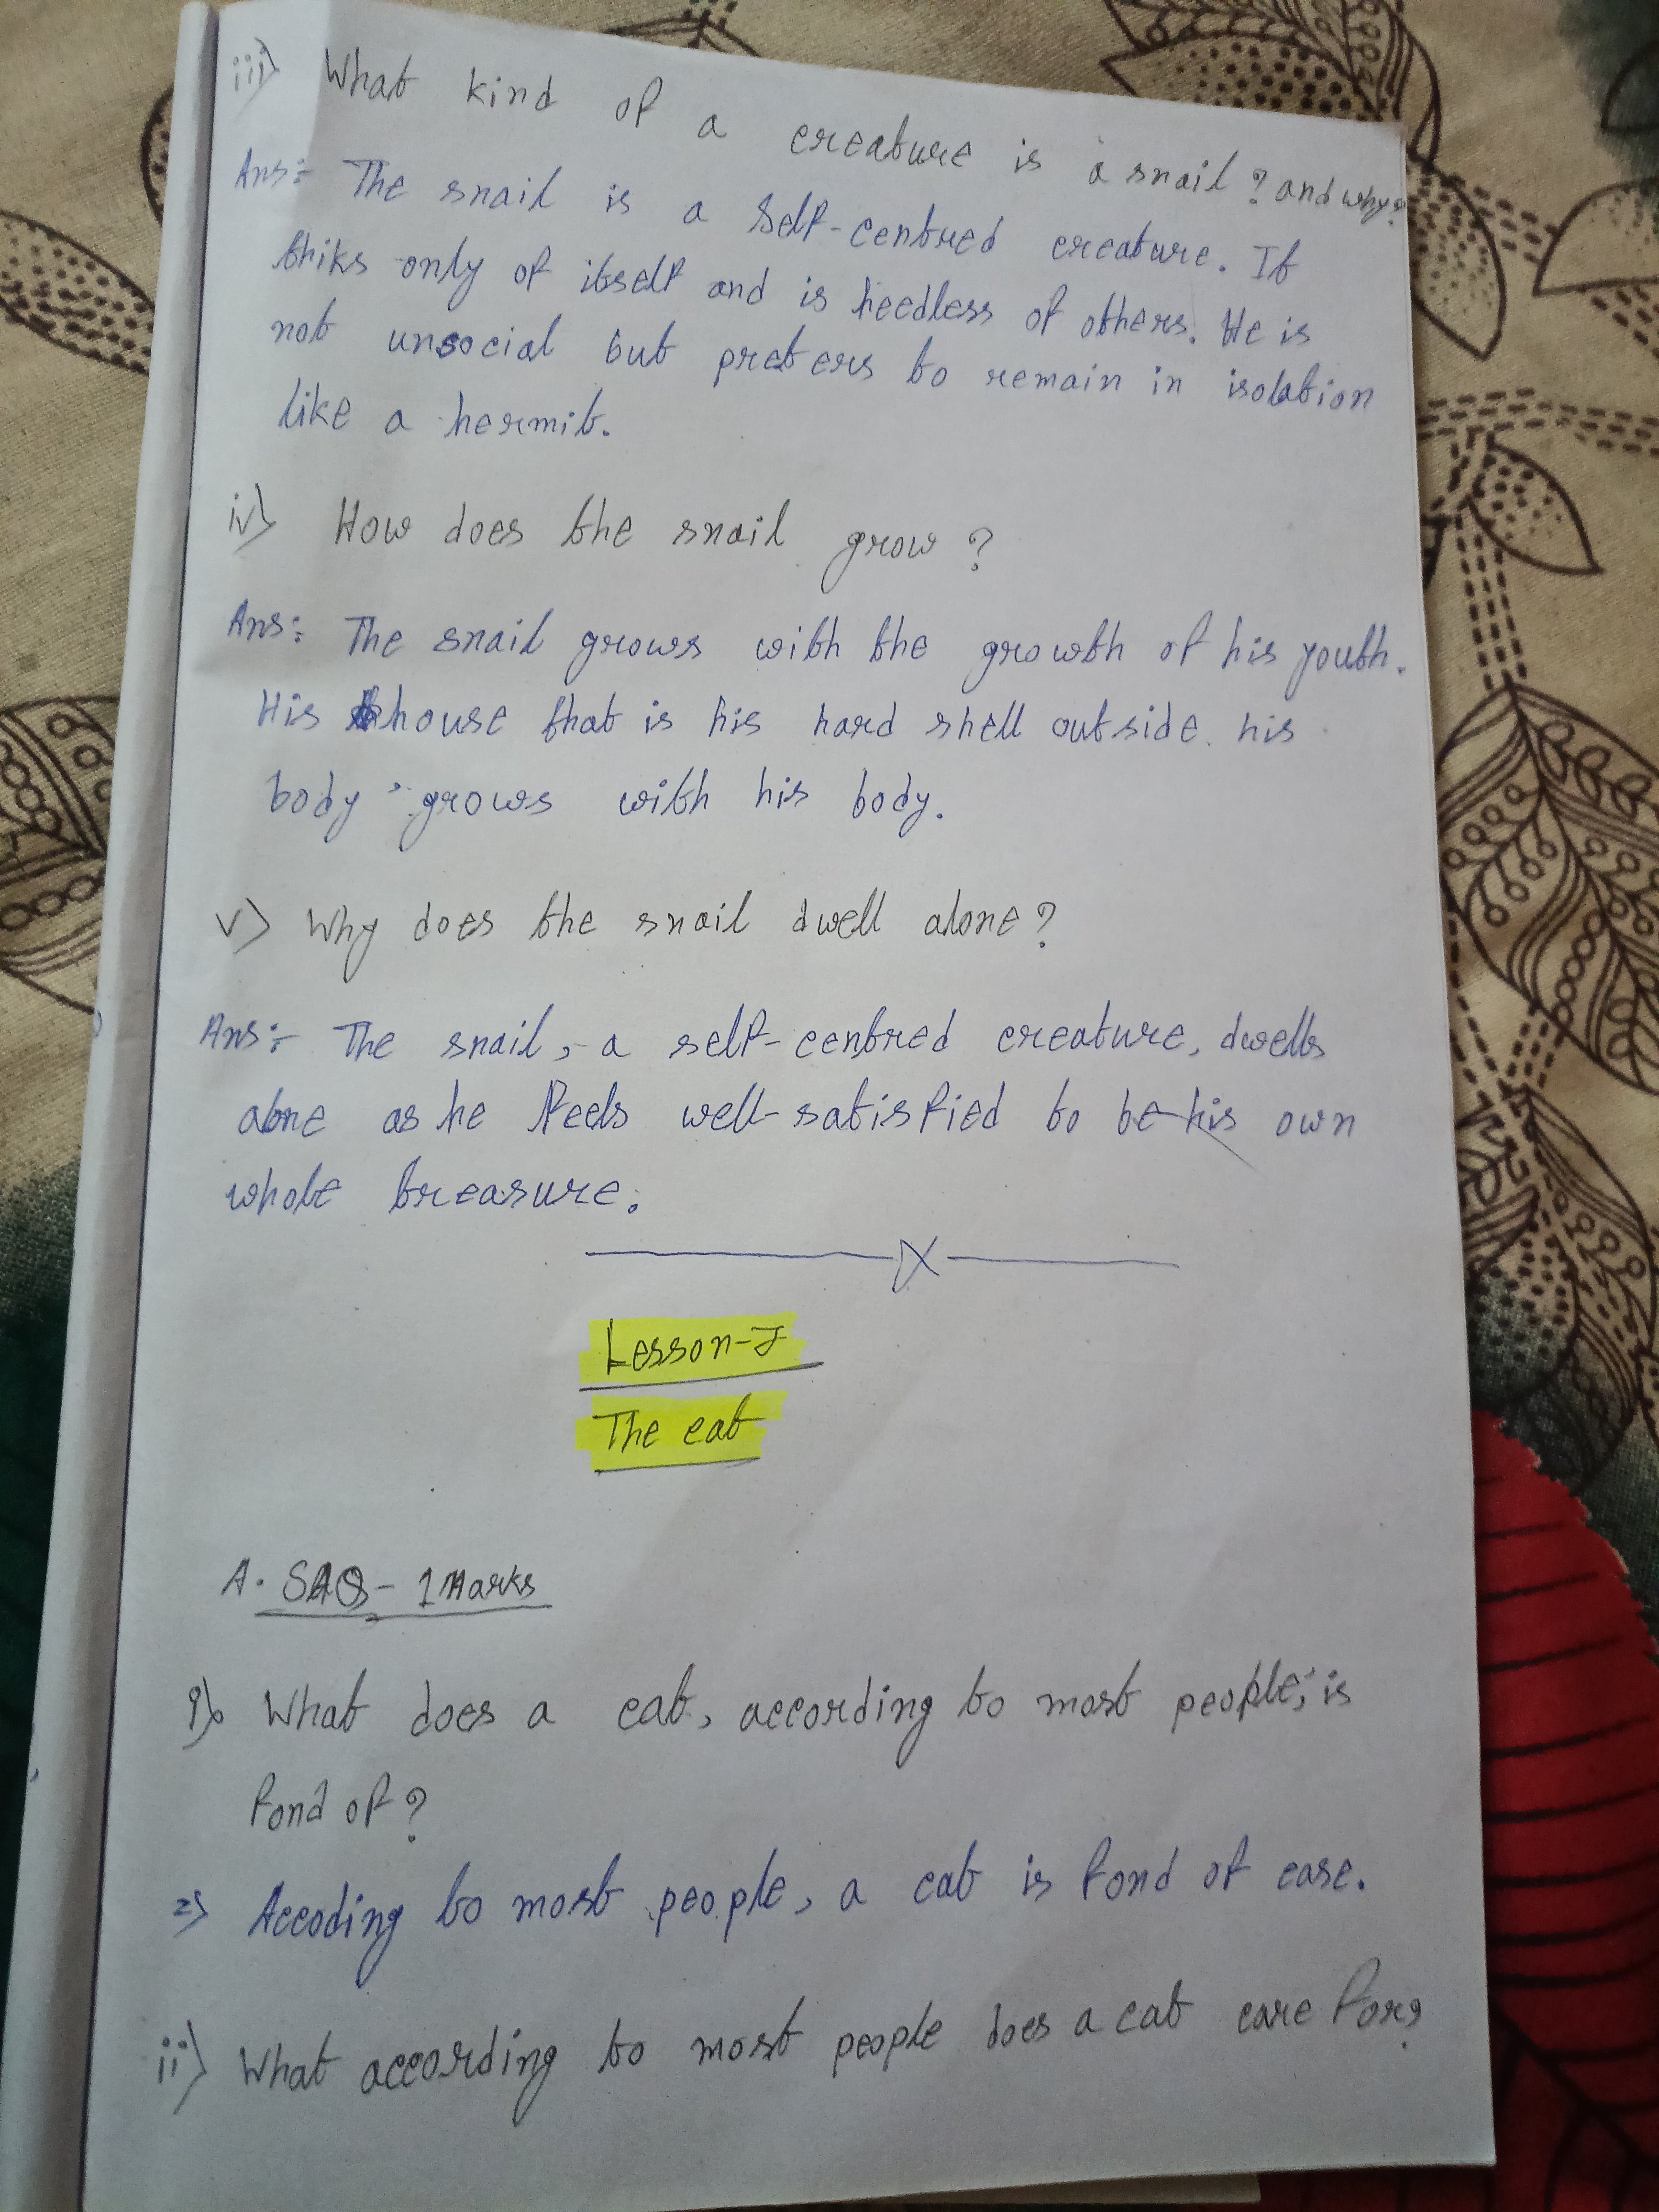 iii) What kind of a creature is a snail? and why?
Ans:- The snail is a Self-centred creature. It
thiks only of itself and is heedless of others. He is
not unsocial but prefers to remain in isolation
like a hermit.
iv) How does the snail grow?
Ans:- The snail grows with the growth of his youth.
His house that is his hard shell outside his
body grows with his body.
v) Why does the snail dwell alone?
Ans:- The snail, a self-centred creature, dwells
alone as he feels well-satisfied to be his own
whole treasure.
Lesson-7
The cat
A. SAQ - 1 Marks
i) What does a cat, according to most people, is
fond of?
=> Accoding to most people, a cat is fond of ease.
ii) What according to most people does a cat care for?